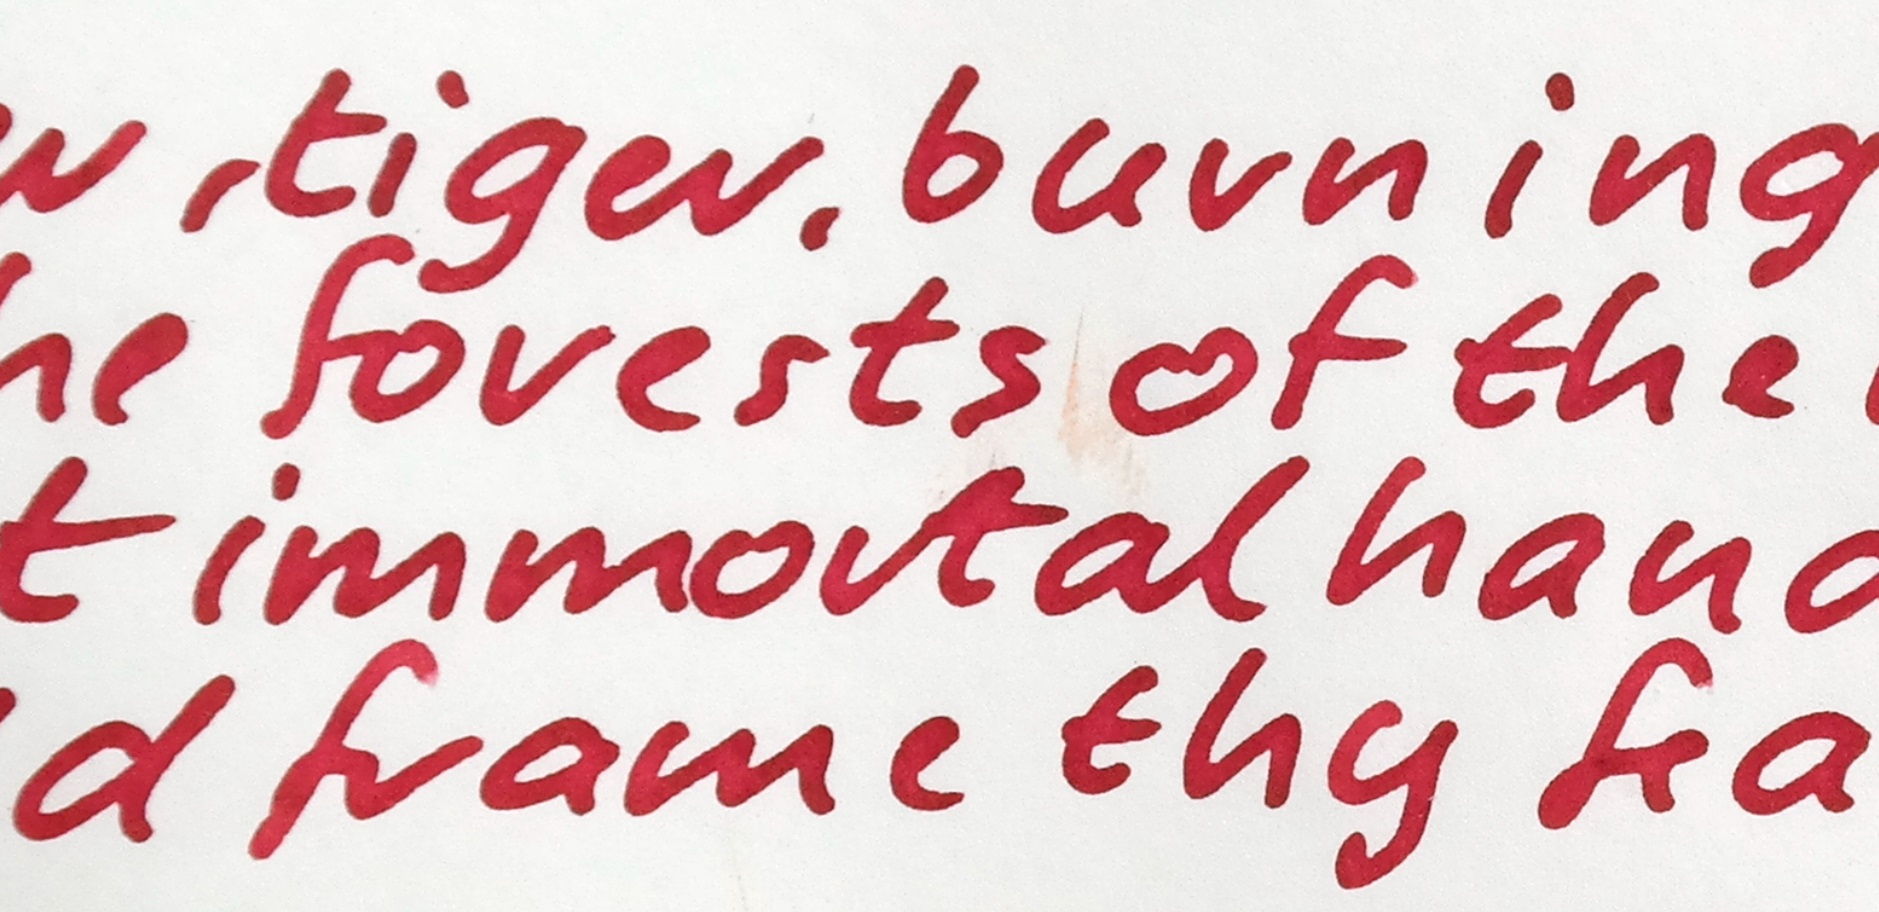 er, tiger, burning
he forests of the
t immortal hand
ld frame thy fea